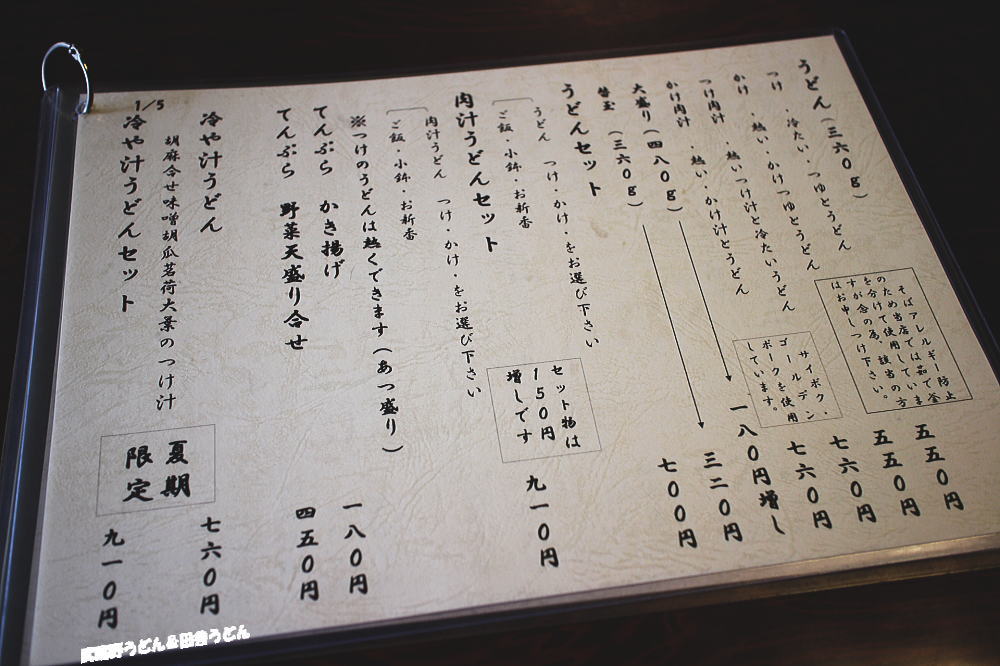 うどん（三六〇ｇ）
つけ ・冷たい・つゆとうどん 五五〇円
かけ ・熱い・かけつゆとうどん 五五〇円
つけ肉汁 ・熱いつけ汁と冷たいうどん 七六〇円
かけ肉汁 ・熱い・かけ汁とうどん 七六〇円
そばアレルギー防止
のため当店では茹で釜
を分けて使用していま
すが念の為、該当の方
はお申しつけ下さい。
サイボク・
ゴールデン
ポークを使用
しています。
大盛り（四八〇ｇ） 一八〇円増し
替玉（三六〇ｇ） 三二〇円
うどんセット 七〇〇円
うどん つけ・かけ・をお選び下さい
ご飯・小鉢・お新香
セット物は
150円
増しです
肉汁うどんセット 九一〇円
肉汁うどん つけ・かけ・をお選び下さい
ご飯・小鉢・お新香
※つけのうどんは熱くできます（あつ盛り）
てんぷら かき揚げ 一八〇円
てんぷら 野菜天盛り合せ 四五〇円
冷や汁うどん 七六〇円
胡麻合せ味噌胡瓜茗荷大葉のつけ汁
夏期
限定
1/5
冷や汁うどんセット 九一〇円
武蔵野うどん&田舎うどん